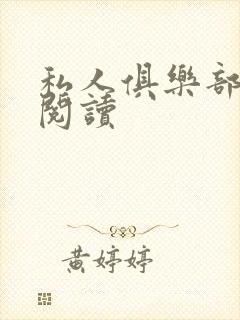 私人俱樂部
閱讀
黃婷婷